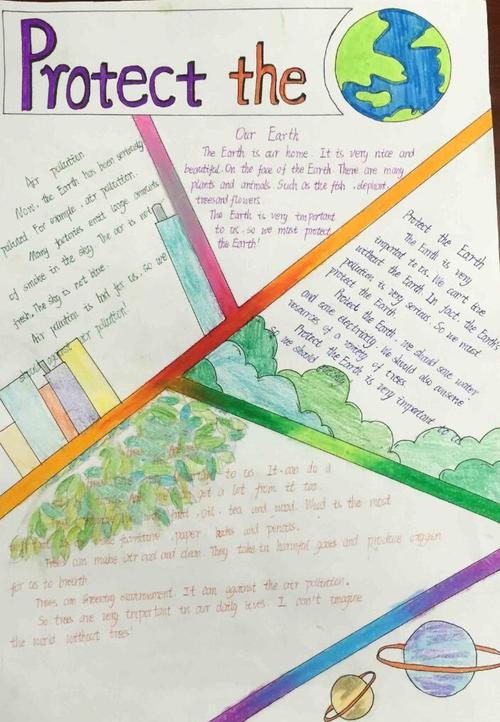 Protect the
Our Earth
The Earth is our home. It is very nice and
beautiful. On the face of the Earth. There are many
plants and animals. Such as the fish, elephant,
trees and flowers.
The Earth is very important
to us, so we must protect
the Earth!
Air pollution
Now, the Earth has been seriously
polluted. For example, air pollution.
Many factories emit large amounts
of smoke in the sky. The air is not
fresh. The sky is not blue.
Air pollution is bad for us, so we
against air pollution!
Protect the Earth
The Earth is very
important to us. We can't live
without the Earth. In fact, the Earth's
pollution is very serious. So we must
protect the Earth.
Protect the Earth, we should save water
and save electricity. We should also conserve
resources of a variety of trees
Protect the Earth is very important to us
So we should
to us. It can do a
get a lot from it too.
, oil, tea and wood. Wood is the most
furniture, paper, and pencils.
Trees can make air cool and clean. They take in harmful gases and produce oxygen
for us to breath
Trees can environment. It can against the air pollution.
So trees are very important in our daily lives. I can't imagine
the world without trees!